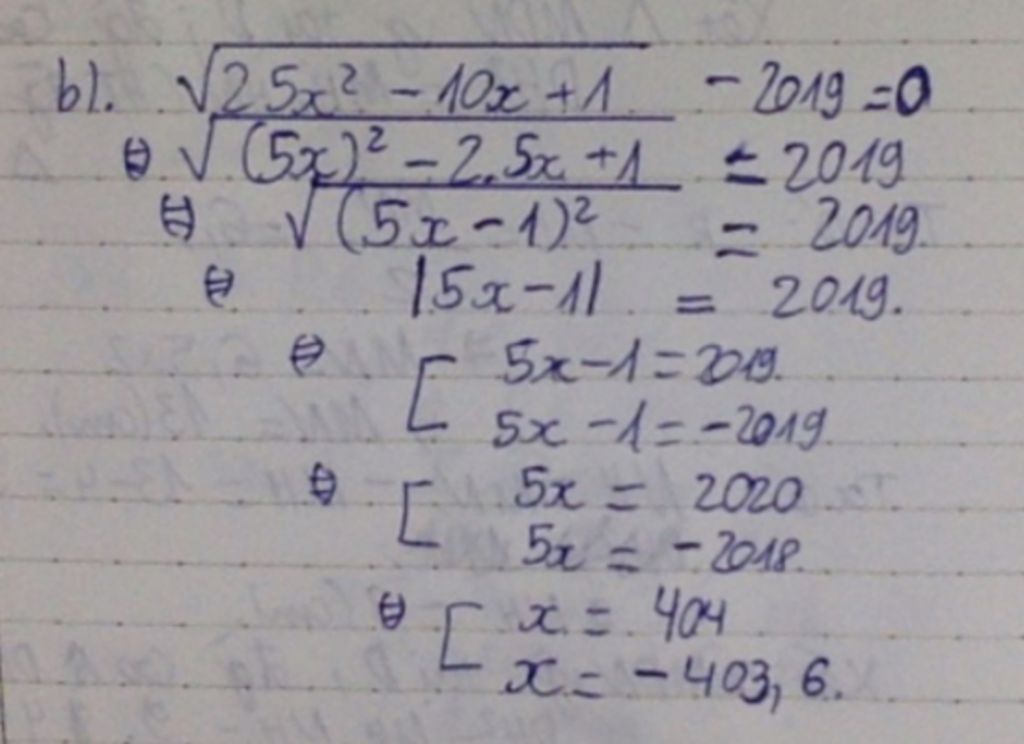 b). √(25x² - 10x + 1) - 2019 = 0
⇔ √((5x)² - 2.5x + 1) = 2019
⇔ √((5x - 1)²) = 2019.
⇔ |5x - 1| = 2019.
⇔ [ 5x - 1 = 2019.
5x - 1 = -2019.
⇔ [ 5x = 2020
5x = -2018.
⇔ [ x = 404
x = -403,6.